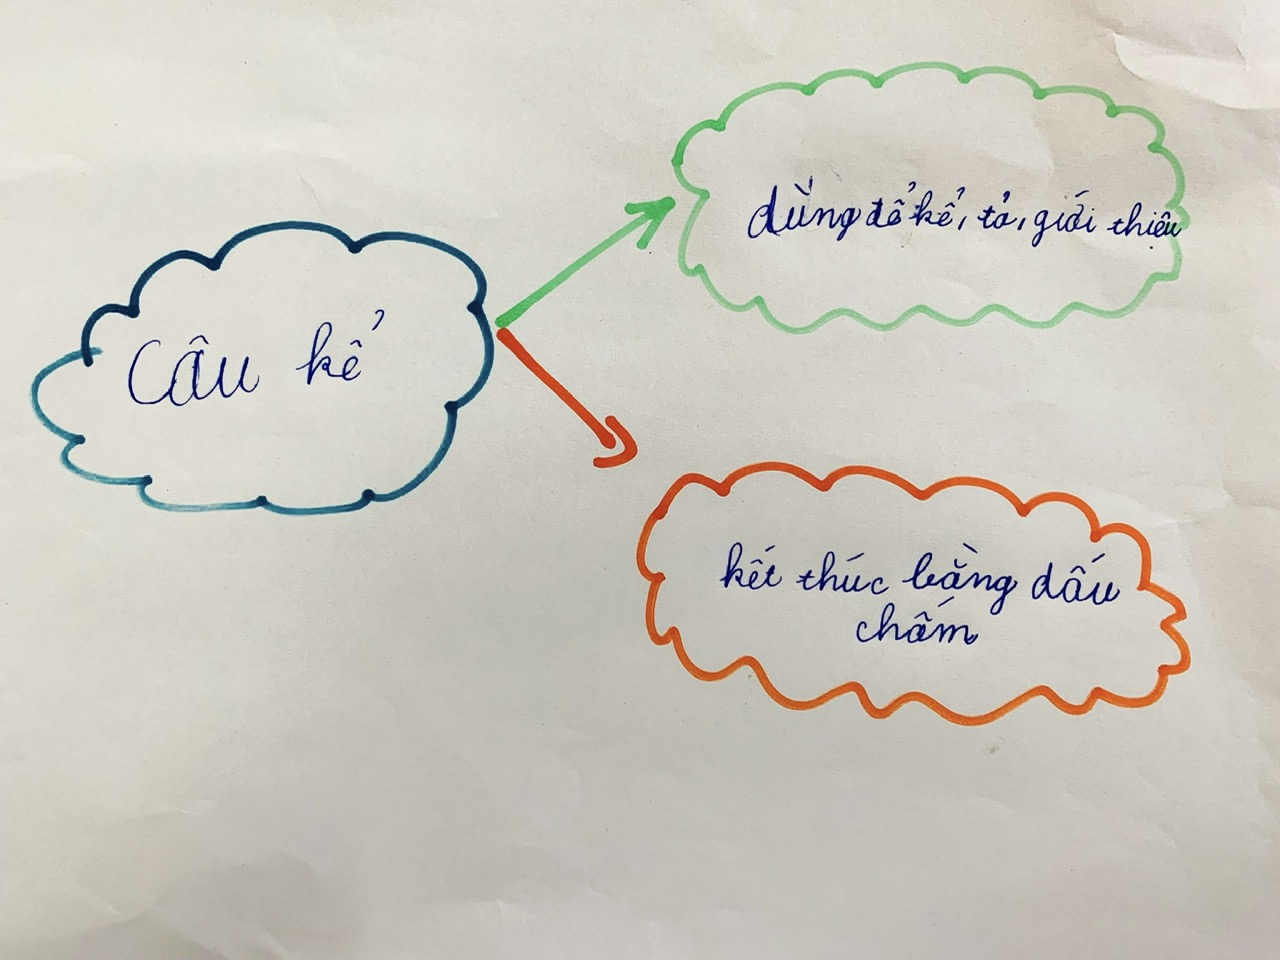 Câu kể
dùng để kể, tả, giới thiệu
kết thúc bằng dấu
chấm